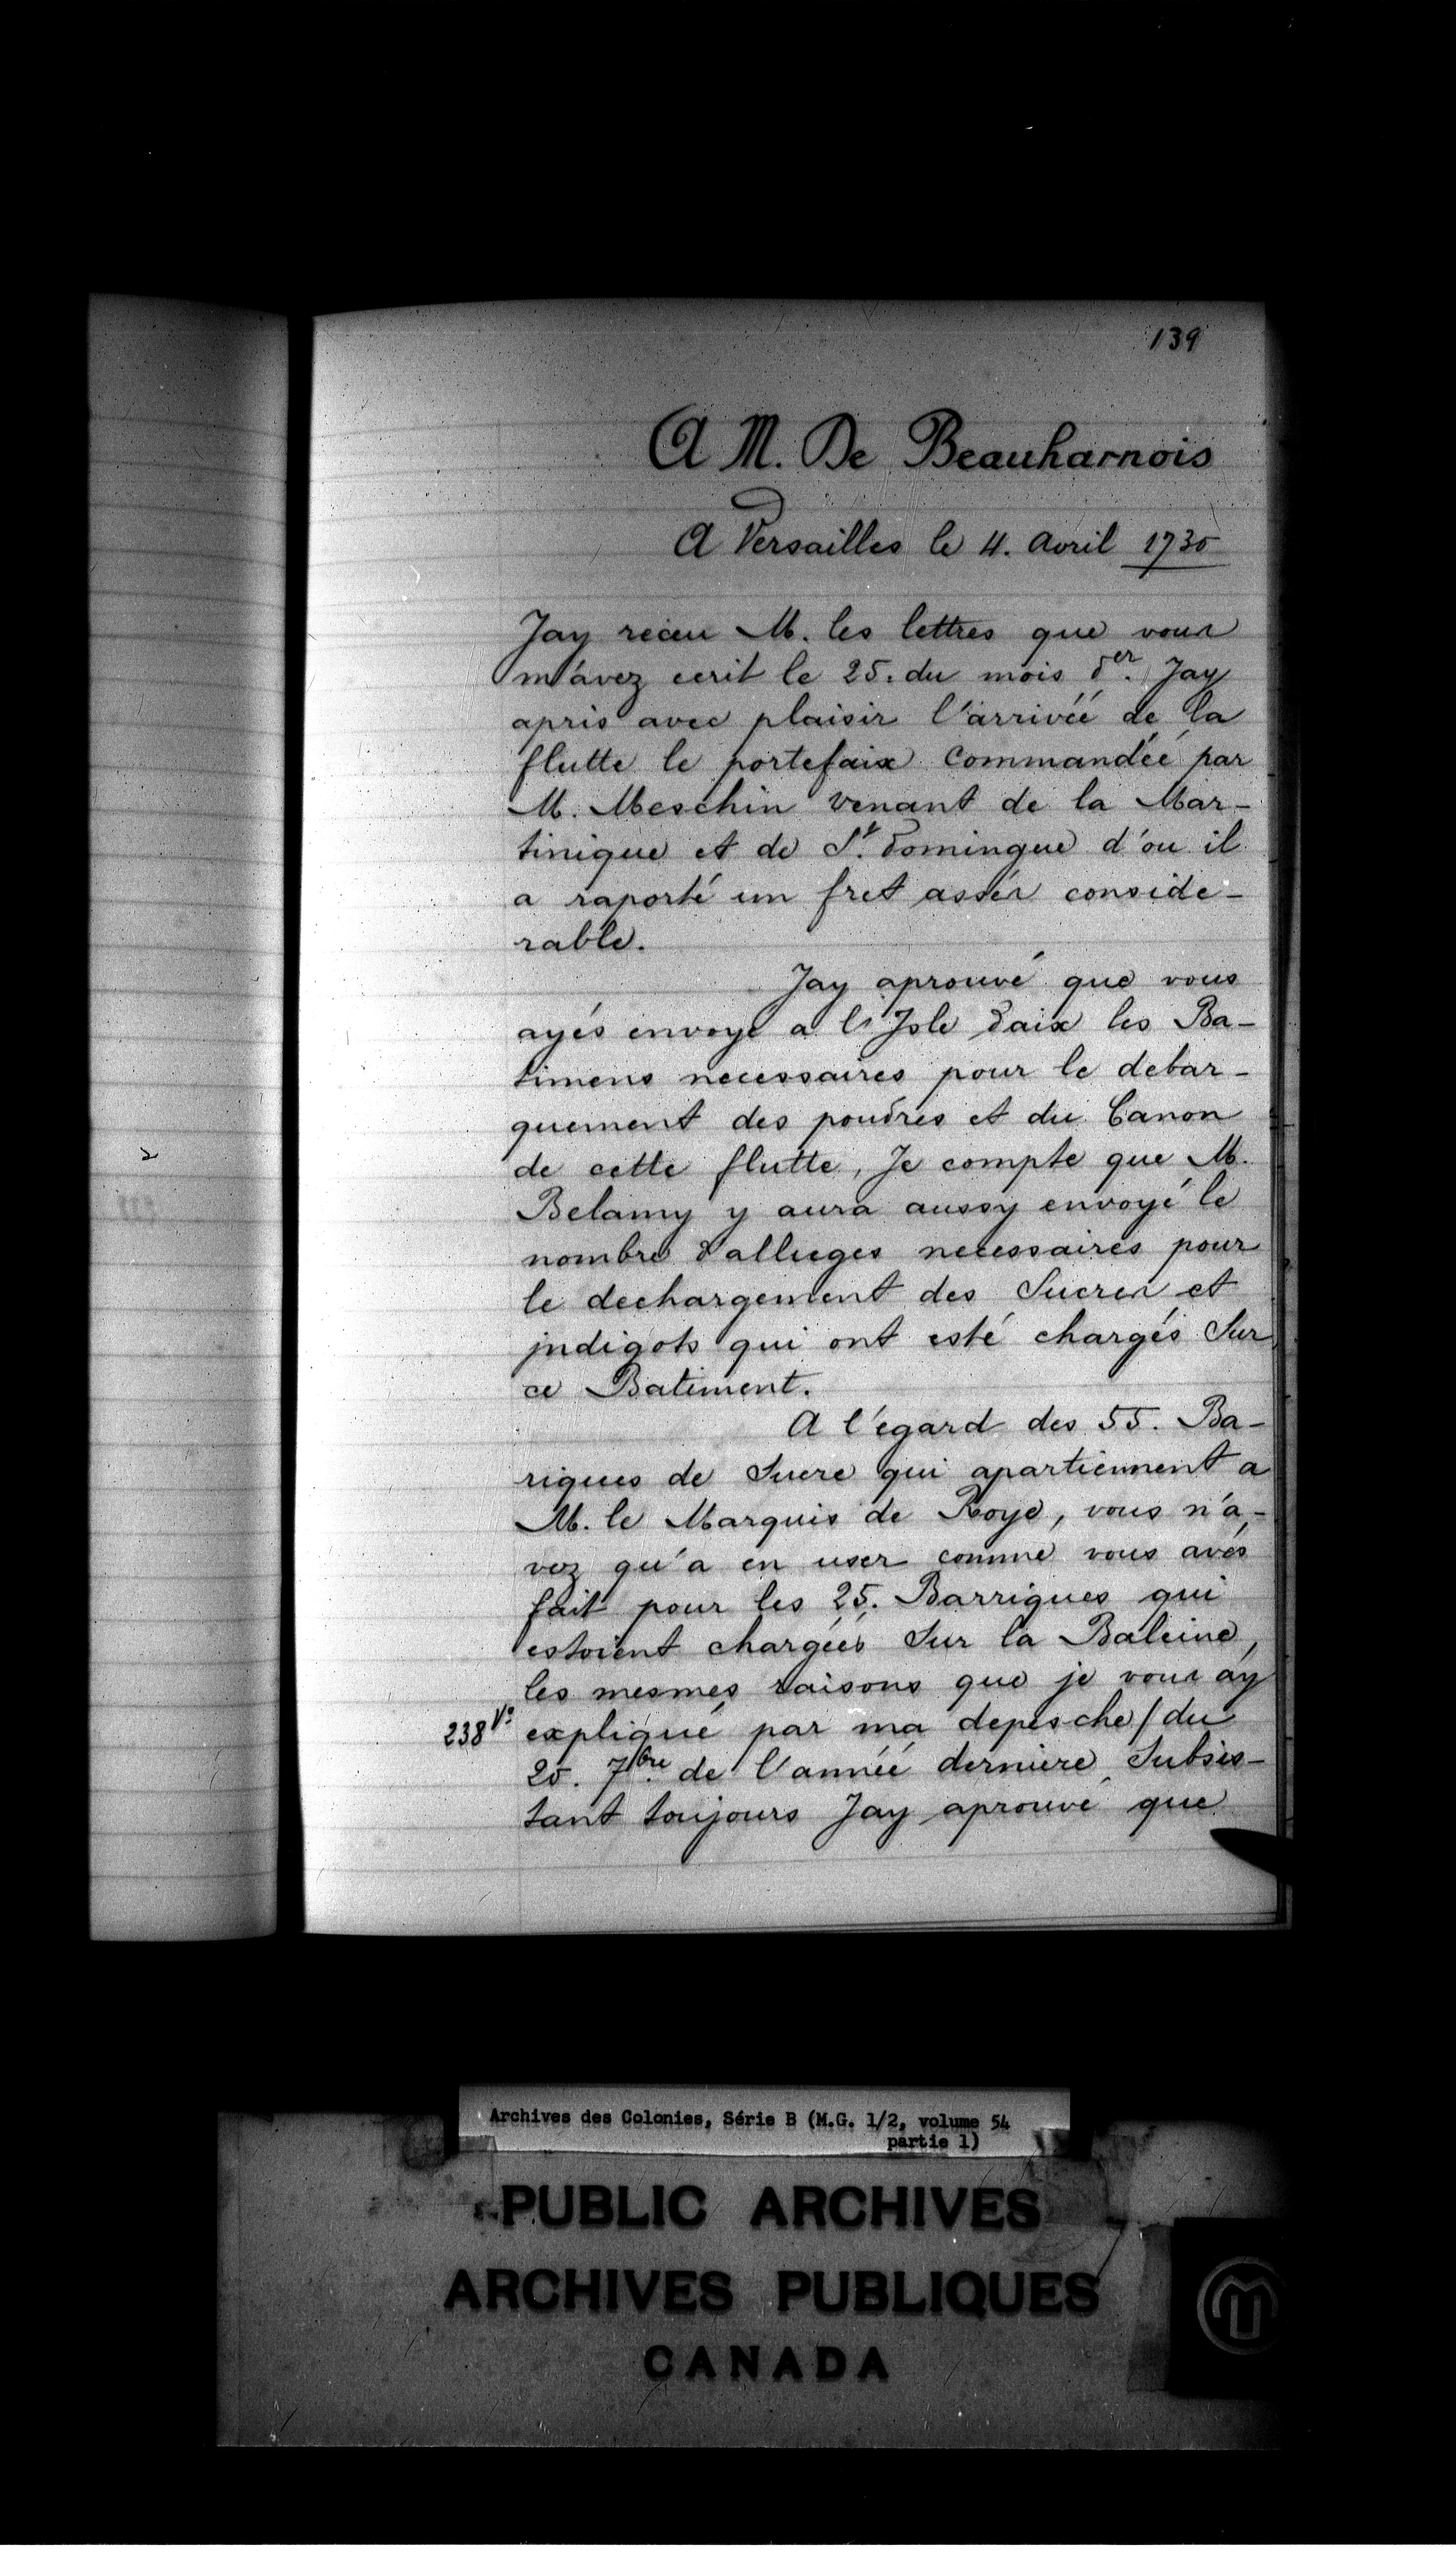 139
A M. De Beauharnois
A Versailles le 4. Avril 1730
Jay receu M. les lettres que vous
m'avez ecrit le 25. du mois der. Jay
apris avec plaisir l'arrivée de la
flutte le portefaix Commandée par
M. Meschin venant de la Mar-
tinique et de St. Domingue d'ou il
a raporté un fret assés conside-
rable.
Jay aprouvé que vous
ayés envoyé a l'Isle daix les Ba-
timens necessaires pour le debar-
quement des poudres et du Canon
de cette flutte, Je compte que M.
Belamy y aura aussy envoyé le
nombre d'allieges necessaires pour
le dechargement des Sucres et
jndigots qui ont esté chargés Sur
ce Batiment.
A l'egard des 55. Ba-
riques de Sucre qui apartiennent a
M. le Marquis de Roye, vous n'a-
vez qu'a en user comme vous avés
fait pour les 25. Barriques qui
estoient chargées Sur la Baleine,
les mesmes raisons que je vous ay
238 Vo expliqué par ma depesche / du
20. 7bre de l'année derniere Subsis-
tant toujours Jay aprouvé que
Archives des Colonies, Série B (M.G. 1/2, volume 54
partie 1)
PUBLIC ARCHIVES
ARCHIVES PUBLIQUES
CANADA